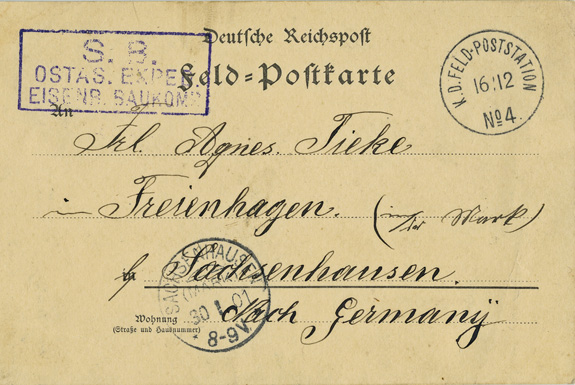 Deutsche Reichspost
Feld-Postkarte
S. B.
OSTAS. EXPED.
EISENB. BAUKOMP.
K.D. FELD-POSTSTATION
16/12
No 4.
An
Frl. Agnes. Tieke
in Freienhagen. (in der Mark)
in
b/ Sachsenhausen.
Nach Germany
SACHSENHAUSEN
(MARK)
30 1. 01
8-9V.
Wohnung
(Straße und Hausnummer)